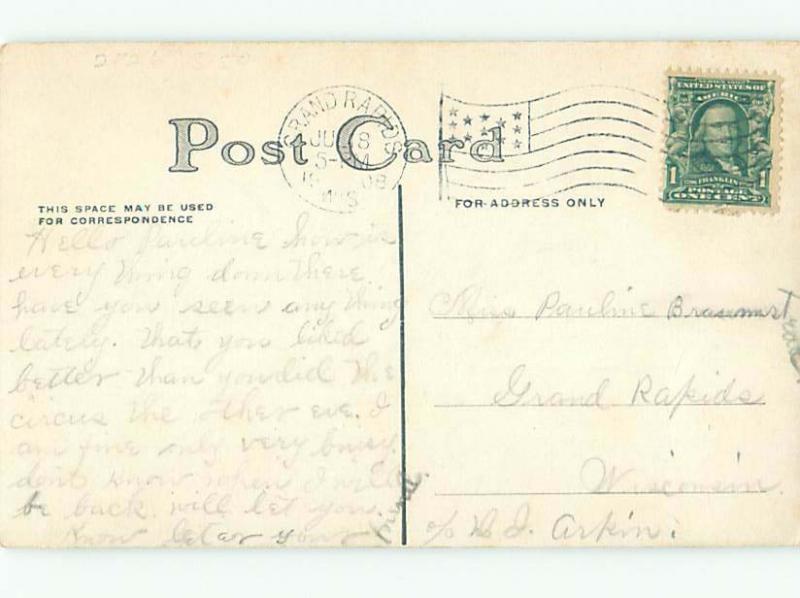 GRAND RAPIDS
8
5-PM
08
WIS
UNITED STATES OF
AMERICA
FRANKLIN
1 POSTAGE 1
ONE CENT
POST CARD
THIS SPACE MAY BE USED
FOR CORRESPONDENCE
FOR ADDRESS ONLY
Hello Pauline how is
every thing down there
have you seen any thing
lately. thats you liked
better than you did the
circus the other eve. I
am fine only very busy
dont know when I will
be back. will let you
know later your
friend
Miss Pauline
Grand Rapids
Wisconsin.
c/o D. J. Arkin.